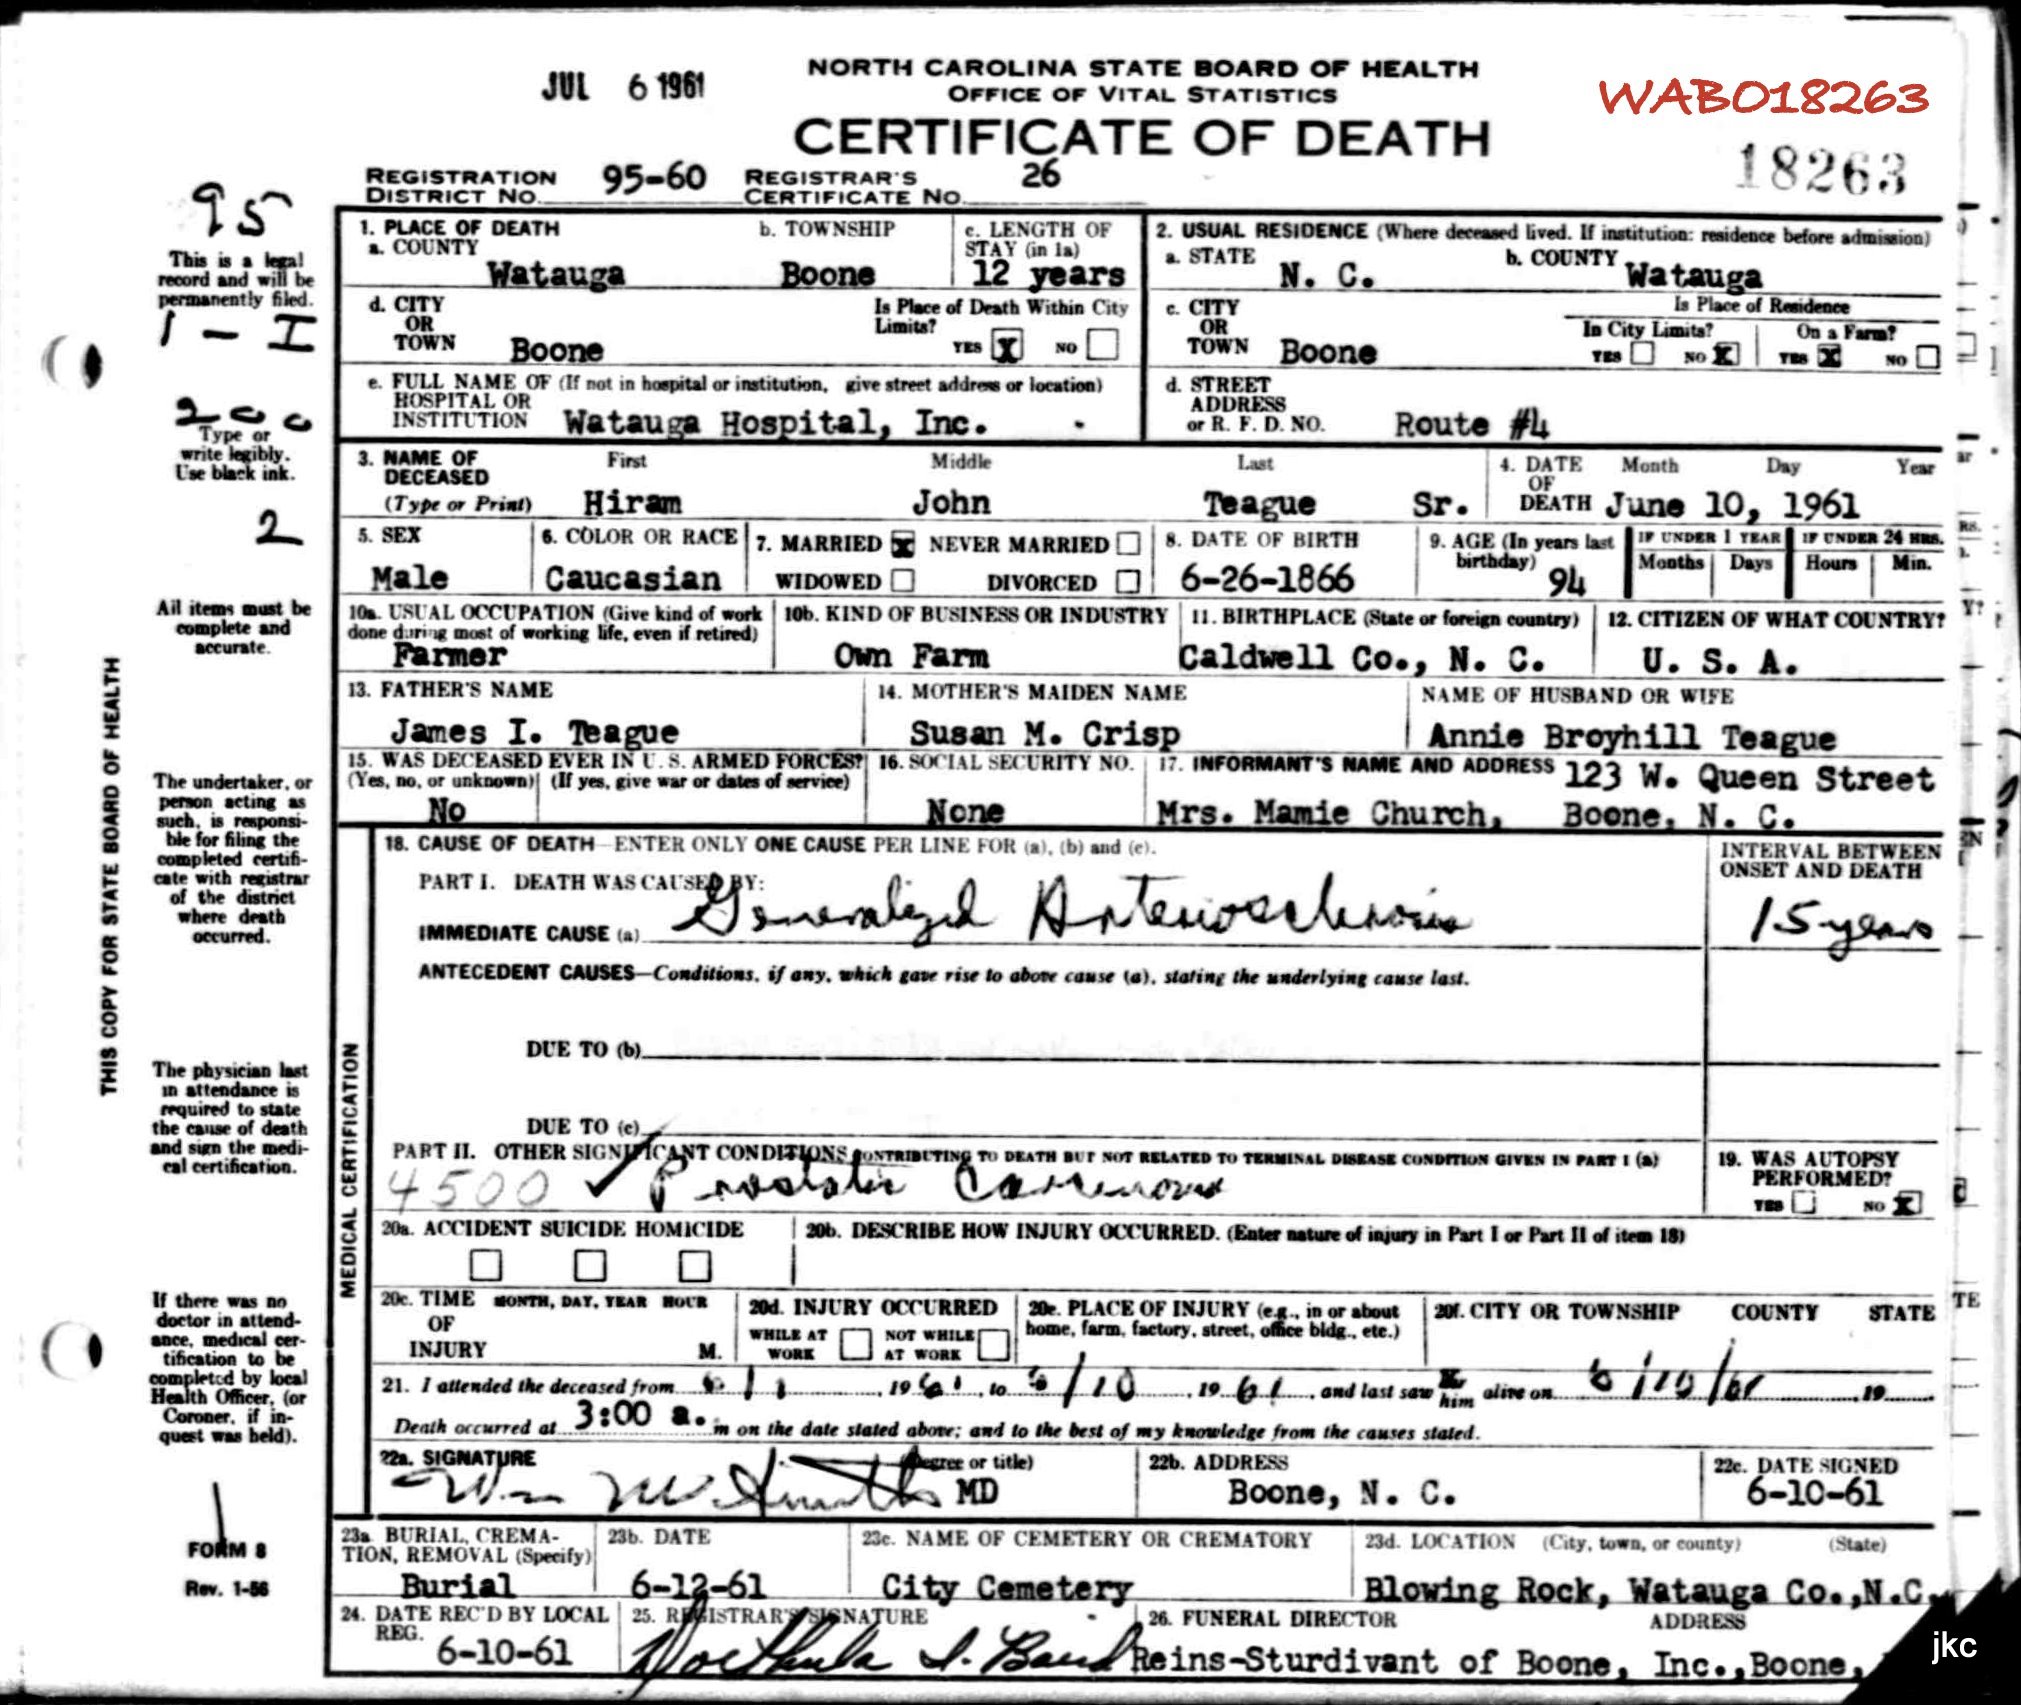 JUL 6 1961
NORTH CAROLINA STATE BOARD OF HEALTH
OFFICE OF VITAL STATISTICS
CERTIFICATE OF DEATH
WABO18263
18263
REGISTRATION DISTRICT NO. 95-60 REGISTRAR'S CERTIFICATE NO. 26
95
This is a legal
record and will be
permanently filed.
1 - I
200
Type or
write legibly.
Use black ink.
2
All items must be
complete and
accurate.
The undertaker, or
person acting as
such, is responsi-
ble for filing the
completed certifi-
cate with registrar
of the district
where death
occurred.
The physician last
in attendance is
required to state
the cause of death
and sign the medi-
cal certification.
If there was no
doctor in attend-
ance, medical cer-
tification to be
completed by local
Health Officer, (or
Coroner, if in-
quest was held).
FORM 8
Rev. 1-56
THIS COPY FOR STATE BOARD OF HEALTH
1. PLACE OF DEATH
a. COUNTY Watauga
b. TOWNSHIP Boone
c. LENGTH OF STAY (in 1a) 12 years
2. USUAL RESIDENCE (Where deceased lived. If institution: residence before admission)
a. STATE N. C.
b. COUNTY Watauga
d. CITY OR TOWN Boone
Is Place of Death Within City Limits? YES X NO
c. CITY OR TOWN Boone
Is Place of Residence
In City Limits? YES NO X On a Farm? YES X NO
e. FULL NAME OF (If not in hospital or institution, give street address or location)
HOSPITAL OR
INSTITUTION Watauga Hospital, Inc.
d. STREET ADDRESS or R. F. D. NO. Route #4
3. NAME OF DECEASED (Type or Print)
First Middle Last
Hiram John Teague Sr.
4. DATE OF DEATH Month Day Year
June 10, 1961
5. SEX
Male
6. COLOR OR RACE
Caucasian
7. MARRIED X NEVER MARRIED
WIDOWED DIVORCED
8. DATE OF BIRTH
6-26-1866
9. AGE (In years last birthday) 94
IF UNDER 1 YEAR Months Days
IF UNDER 24 HRS. Hours Min.
10a. USUAL OCCUPATION (Give kind of work done during most of working life, even if retired)
Farmer
10b. KIND OF BUSINESS OR INDUSTRY
Own Farm
11. BIRTHPLACE (State or foreign country)
Caldwell Co., N. C.
12. CITIZEN OF WHAT COUNTRY?
U. S. A.
13. FATHER'S NAME
James I. Teague
14. MOTHER'S MAIDEN NAME
Susan M. Crisp
NAME OF HUSBAND OR WIFE
Annie Broyhill Teague
15. WAS DECEASED EVER IN U. S. ARMED FORCES?
(Yes, no, or unknown) (If yes, give war or dates of service)
No
16. SOCIAL SECURITY NO.
None
17. INFORMANT'S NAME AND ADDRESS 123 W. Queen Street
Mrs. Mamie Church, Boone, N. C.
MEDICAL CERTIFICATION
18. CAUSE OF DEATH—ENTER ONLY ONE CAUSE PER LINE FOR (a), (b) and (c).
INTERVAL BETWEEN ONSET AND DEATH
PART I. DEATH WAS CAUSED BY:
IMMEDIATE CAUSE (a) Generalized Arteriosclerosis
15 years
ANTECEDENT CAUSES—Conditions, if any, which gave rise to above cause (a), stating the underlying cause last.
DUE TO (b)
DUE TO (c)
PART II. OTHER SIGNIFICANT CONDITIONS CONTRIBUTING TO DEATH BUT NOT RELATED TO TERMINAL DISEASE CONDITION GIVEN IN PART I (a)
4500 ✓ Prostatic Carcinoma
19. WAS AUTOPSY PERFORMED?
YES NO X
20a. ACCIDENT SUICIDE HOMICIDE
20b. DESCRIBE HOW INJURY OCCURRED. (Enter nature of injury in Part I or Part II of item 18)
20c. TIME OF INJURY MONTH, DAY, YEAR HOUR M.
20d. INJURY OCCURRED
WHILE AT WORK NOT WHILE AT WORK
20e. PLACE OF INJURY (e.g., in or about home, farm, factory, street, office bldg., etc.)
20f. CITY OR TOWNSHIP COUNTY STATE
21. I attended the deceased from 6/1, 1961, to 6/10, 1961, and last saw him alive on 6/10/61 19
Death occurred at 3:00 a. m on the date stated above; and to the best of my knowledge from the causes stated.
22a. SIGNATURE (Degree or title)
Wm MD
22b. ADDRESS
Boone, N. C.
22c. DATE SIGNED
6-10-61
23a. BURIAL, CREMATION, REMOVAL (Specify)
Burial
23b. DATE
6-12-61
23c. NAME OF CEMETERY OR CREMATORY
City Cemetery
23d. LOCATION (City, town, or county) (State)
Blowing Rock, Watauga Co.,N.C.
24. DATE REC'D BY LOCAL REG.
6-10-61
25. REGISTRAR'S SIGNATURE
26. FUNERAL DIRECTOR ADDRESS
Reins-Sturdivant of Boone, Inc.,Boone,
jkc